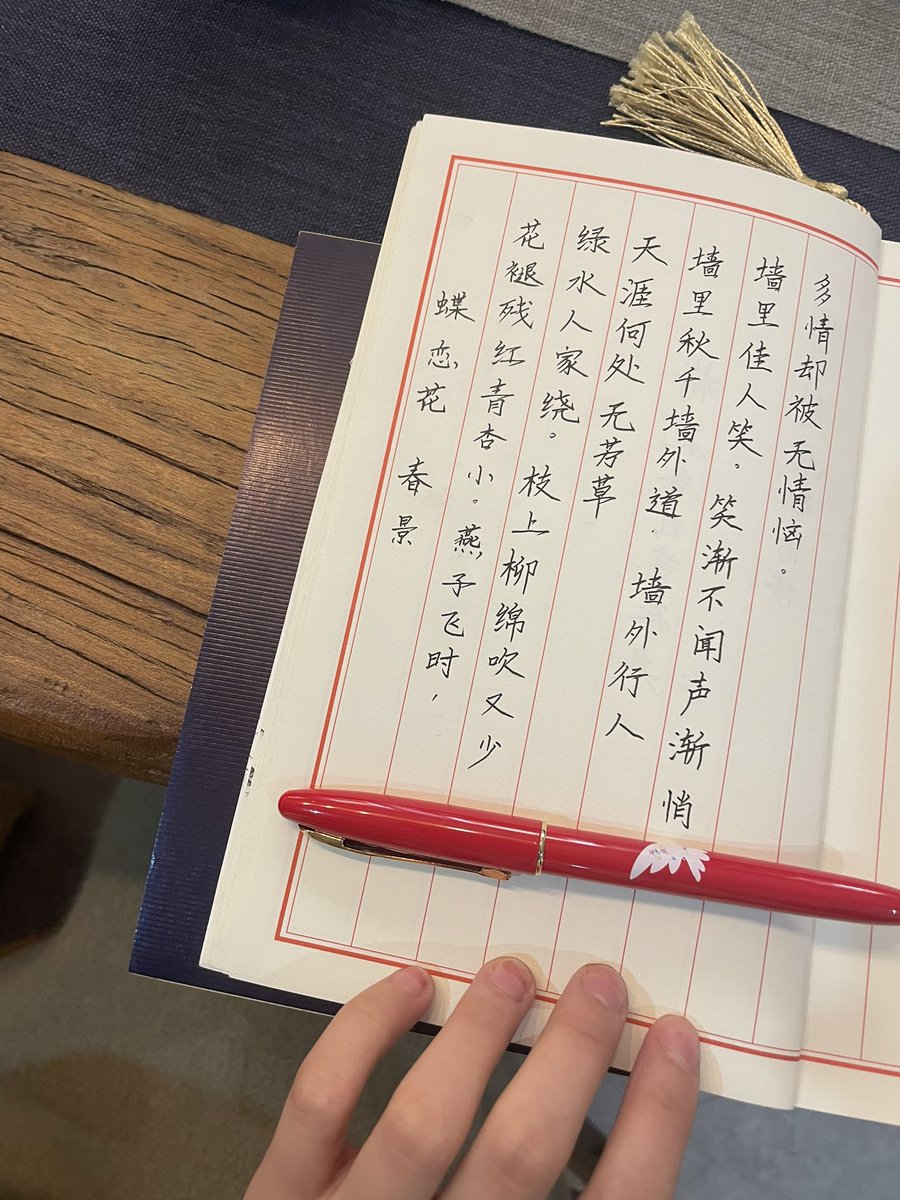 蝶恋花 春景
花褪残红青杏小。燕子飞时，
绿水人家绕。枝上柳绵吹又少
天涯何处无芳草
墙里秋千墙外道．墙外行人
墙里佳人笑。笑渐不闻声渐悄
多情却被无情恼。